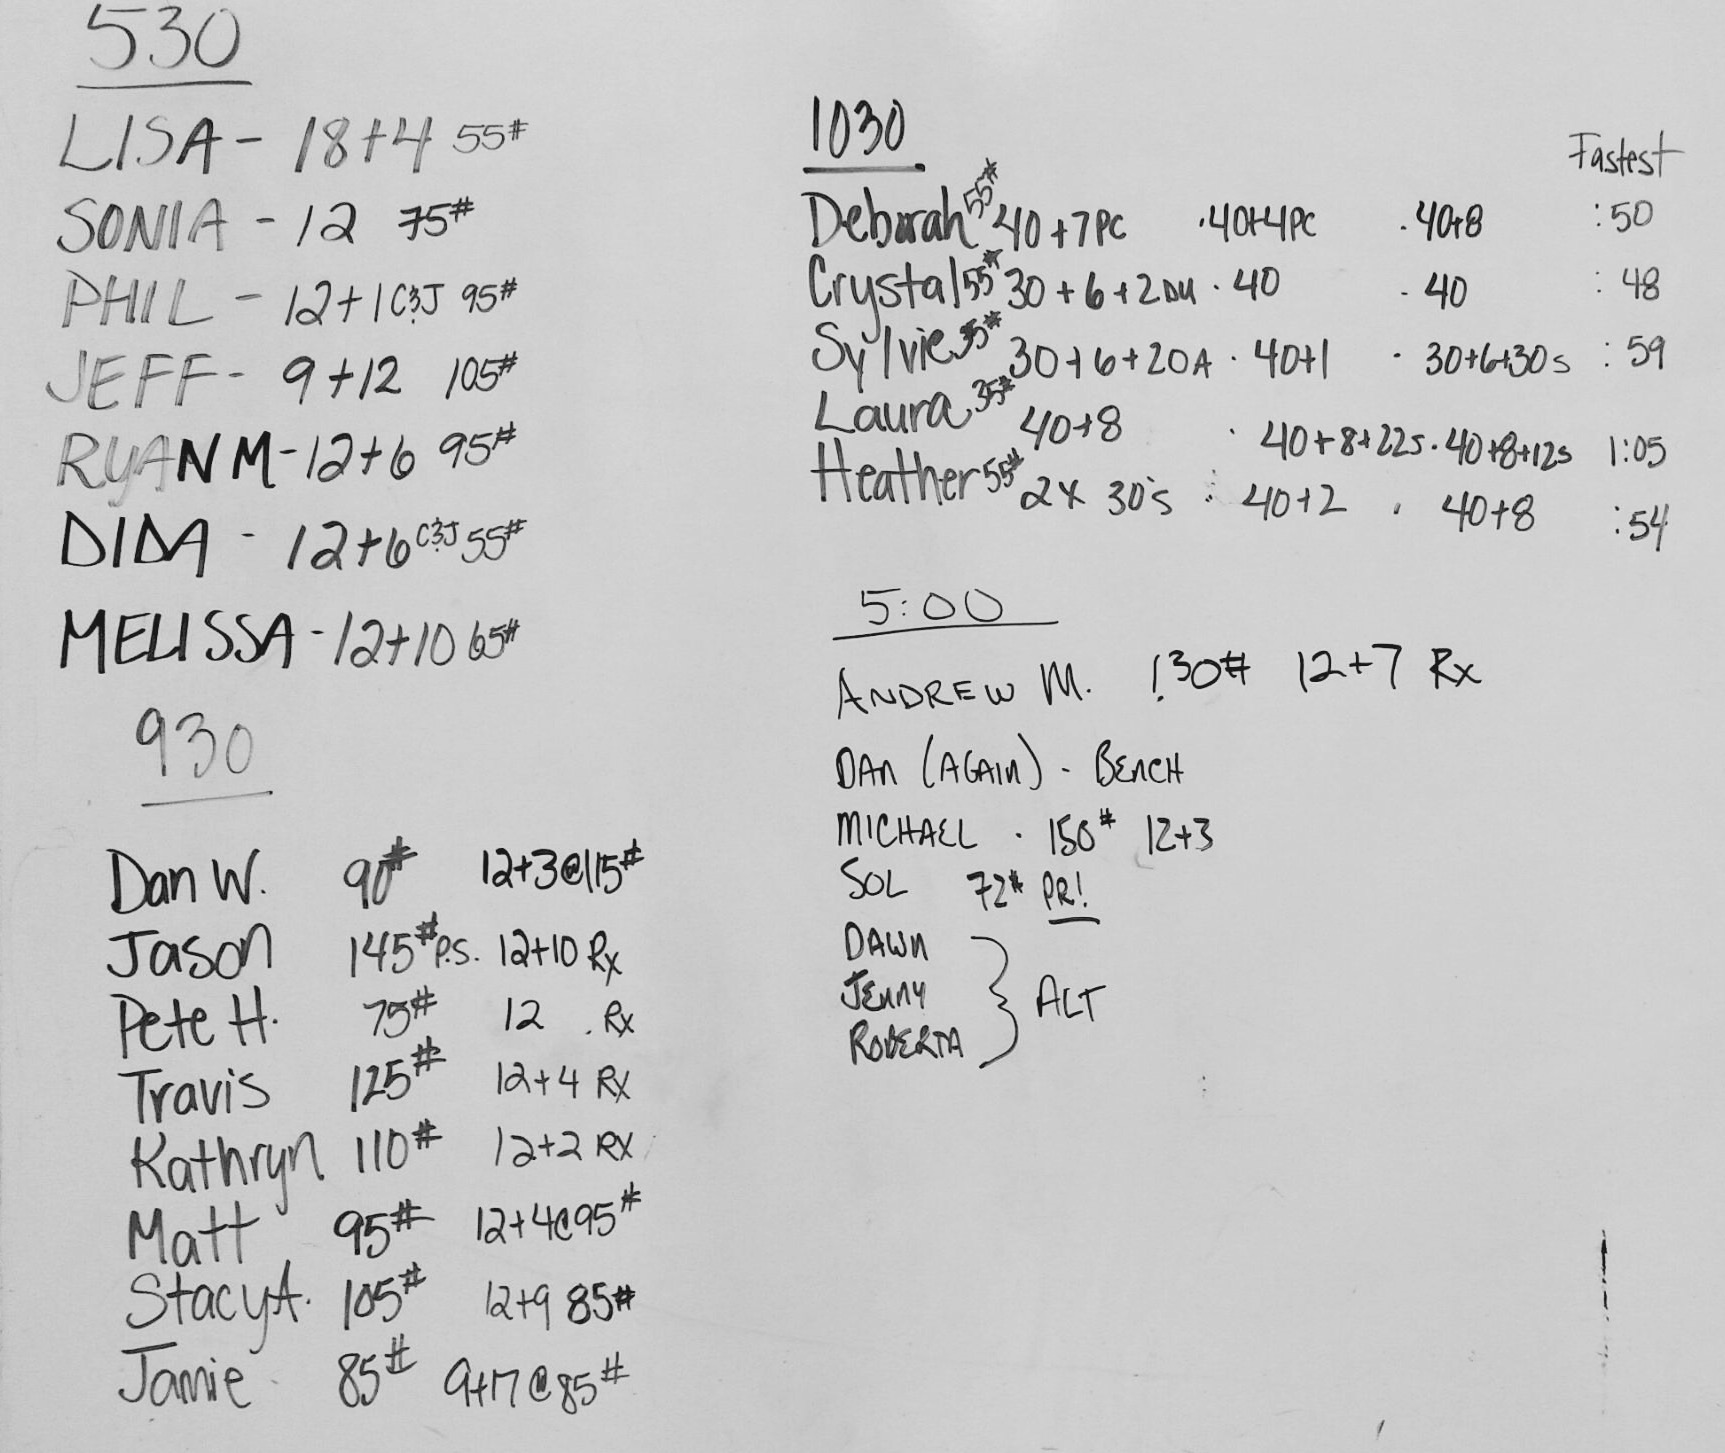 530
LISA - 18+4 55#
SONIA - 12 75#
PHIL - 12+1 C&J 95#
JEFF - 9+12 105#
RYAN M - 12+6 95#
DIDA - 12+6 C&J 55#
MELISSA - 12+10 65#
930
Dan W. 90# 12+3@115#
Jason 145# P.S. 12+10 Rx
Pete H. 75# 12 . Rx
Travis 125# 12+4 Rx
Kathryn 110# 12+2 Rx
Matt 95# 12+4@95#
Stacy A. 105# 12+9 85#
Jamie 85# 9+17@85#
1030
Fastest
Deborah 55# 40+7PC · 40+4PC · 40+8 :50
Crystal 55# 30+6+2DU · 40 · 40 :48
Sylvie 35# 30+6+20A · 40+1 · 30+6+30s :59
Laura 35# 40+8 · 40+8+22s · 40+8+12s 1:05
Heather 55# 2x 30's : 40+2 · 40+8 :54
5:00
ANDREW M. 130# 12+7 Rx
DAN (AGAIN) - BENCH
MICHAEL · 150# 12+3
SOL 72# PR!
DAWN
JENNY } ALT
ROBERTA